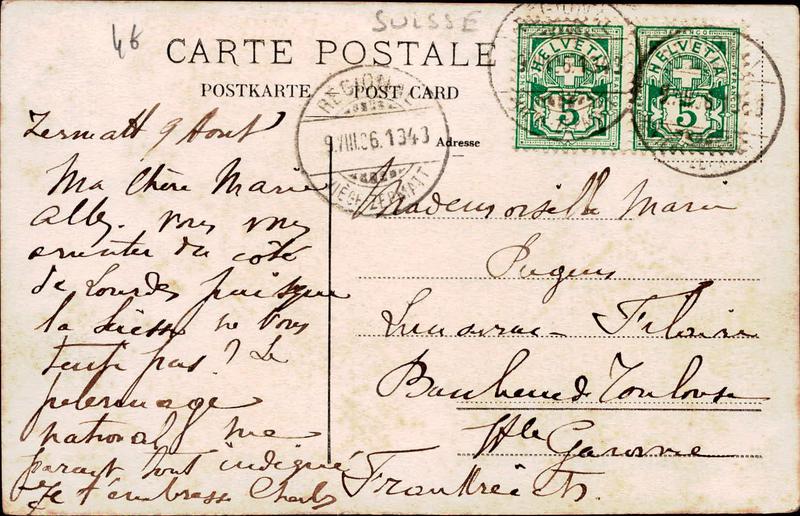 46
SUISSE
CARTE POSTALE
POSTKARTE POST CARD
Adresse
HELVETIA
5
HELVETIA
5
REGION
9.VIII.06.1343
VIEGE-ZERMATT
Zermatt 9 Aout
Ma Chère Marie
Allez vous vous
orienter du côté
de Lourdes puisque
la Suisse ne vous
tente pas? Le
pelerinage
national me
parait tout indiqué
Je t'embrasse Charles
Mademoiselle Marie
Pugens
Filaire
Toulouse
Hte Garonne
Frankreich.